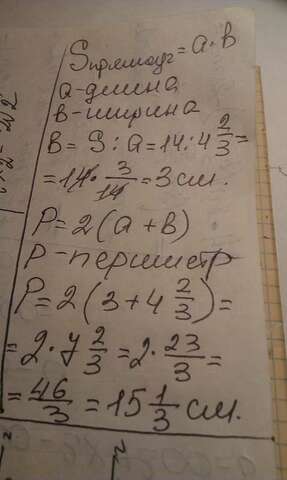 Sпрямоуг = a·b
a-длина
b-ширина
b = S : a = 14 : 4 2/3 =
= 14 · 3/14 = 3 см.
P = 2(a+b)
P-периметр
P = 2(3+4 2/3) =
= 2·7 2/3 = 2·23/3 =
= 46/3 = 15 1/3 см.